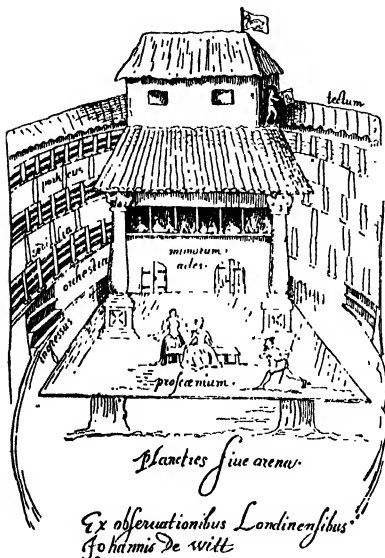 tectum
porticus
sedilia
orchestra
mimorum
ædes.
ingressus
proscænium.
Planities ſiue arena.
Ex obſeruationibus Londinenſibus
Johannis De witt